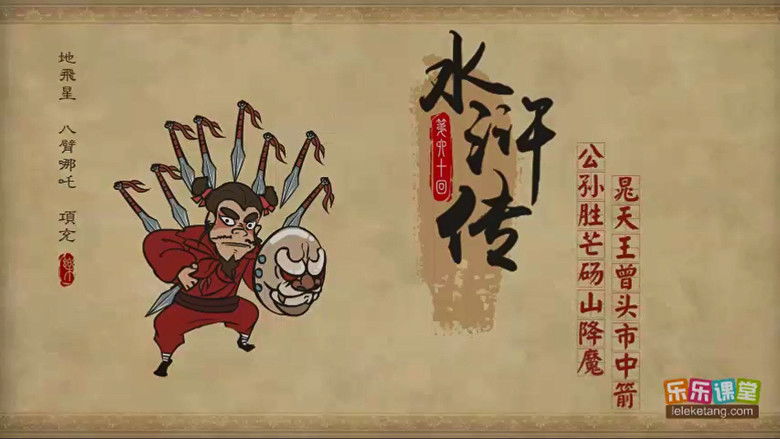 地飛星 八臂哪吒 項充
水浒传
第六十回
公孙胜芒砀山降魔
晁天王曾头市中箭
乐乐课堂
leleketang.com